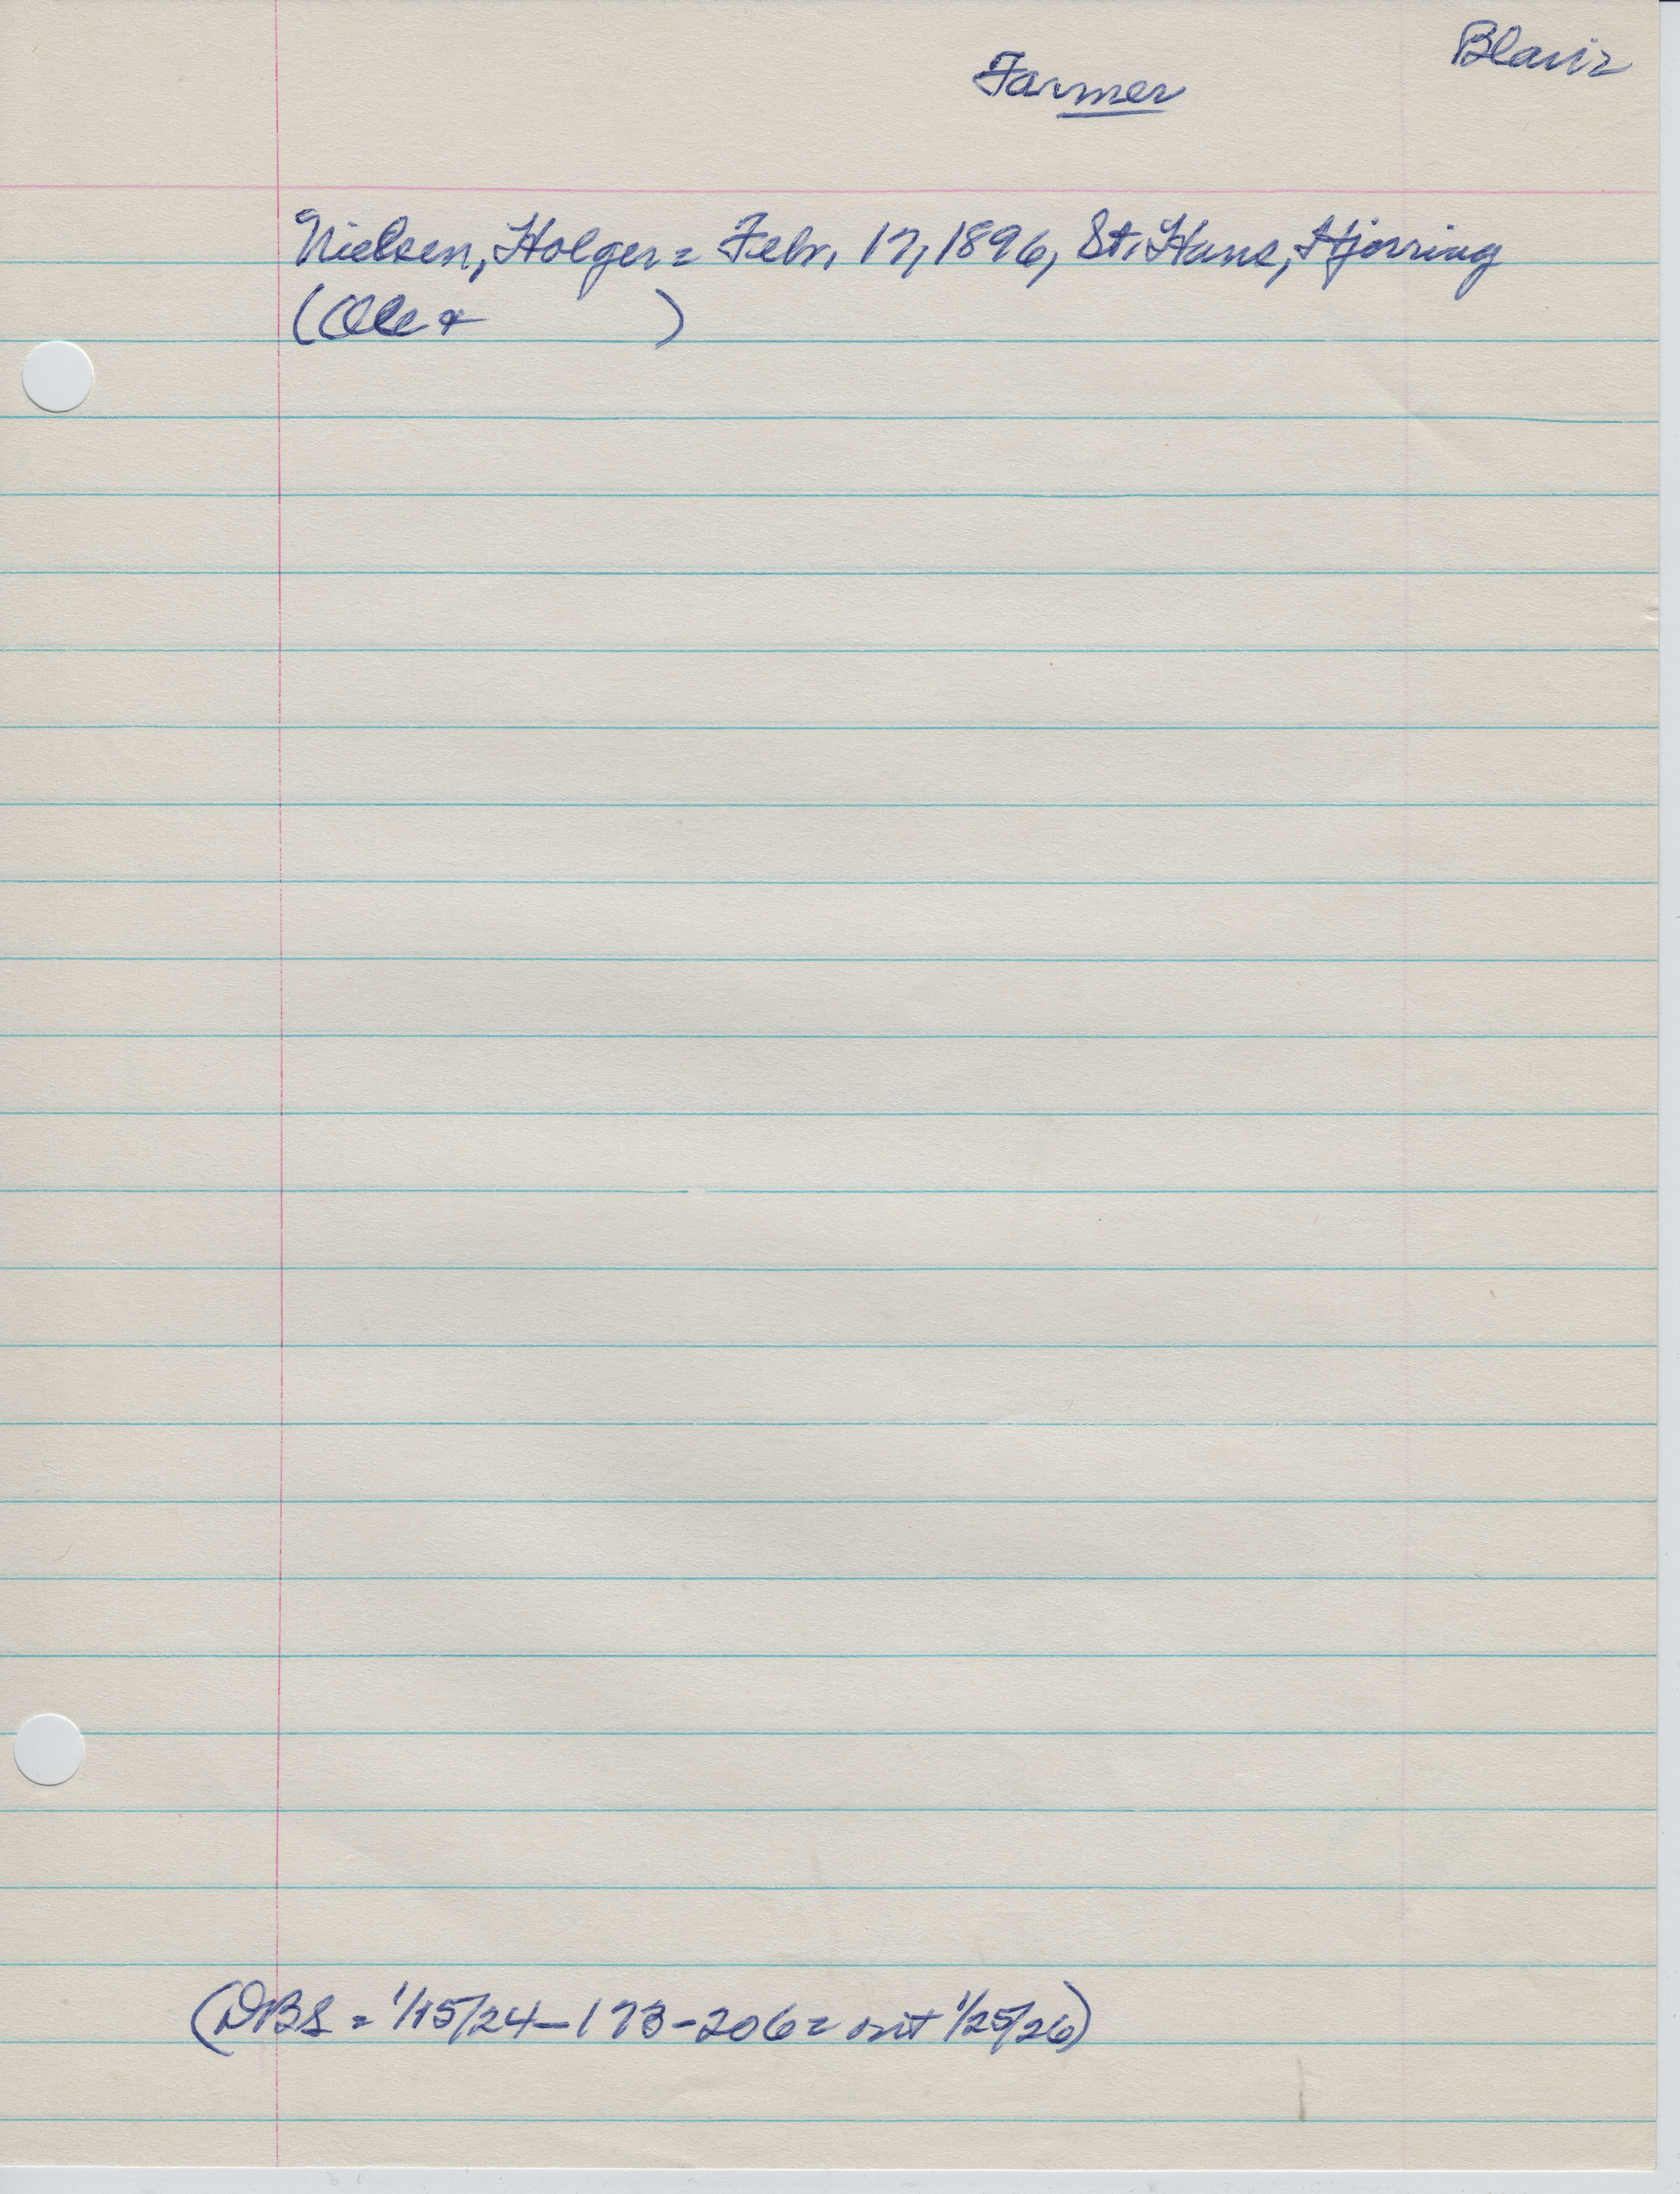 Blair
Farmer
Nielsen, Holger = Febr. 17, 1896, St. Hans, Hjørring
(Ole + )
(DBS = 1/15/24 – 173 - 206 = out 1/25/26)